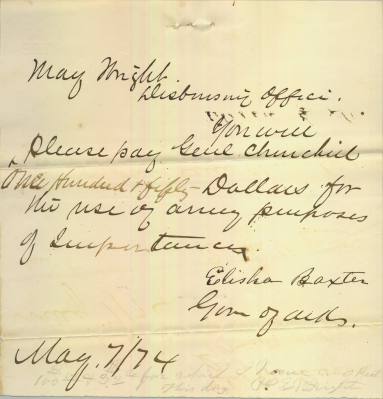 May Wright.
Disbursing Office.
You will
Please pay Genl Churchill
One Hundred & fifty Dollars for
the use of army purposes
of Importance.
Elisha Baxter
Gov of arks.
May. 7/74
for
this day